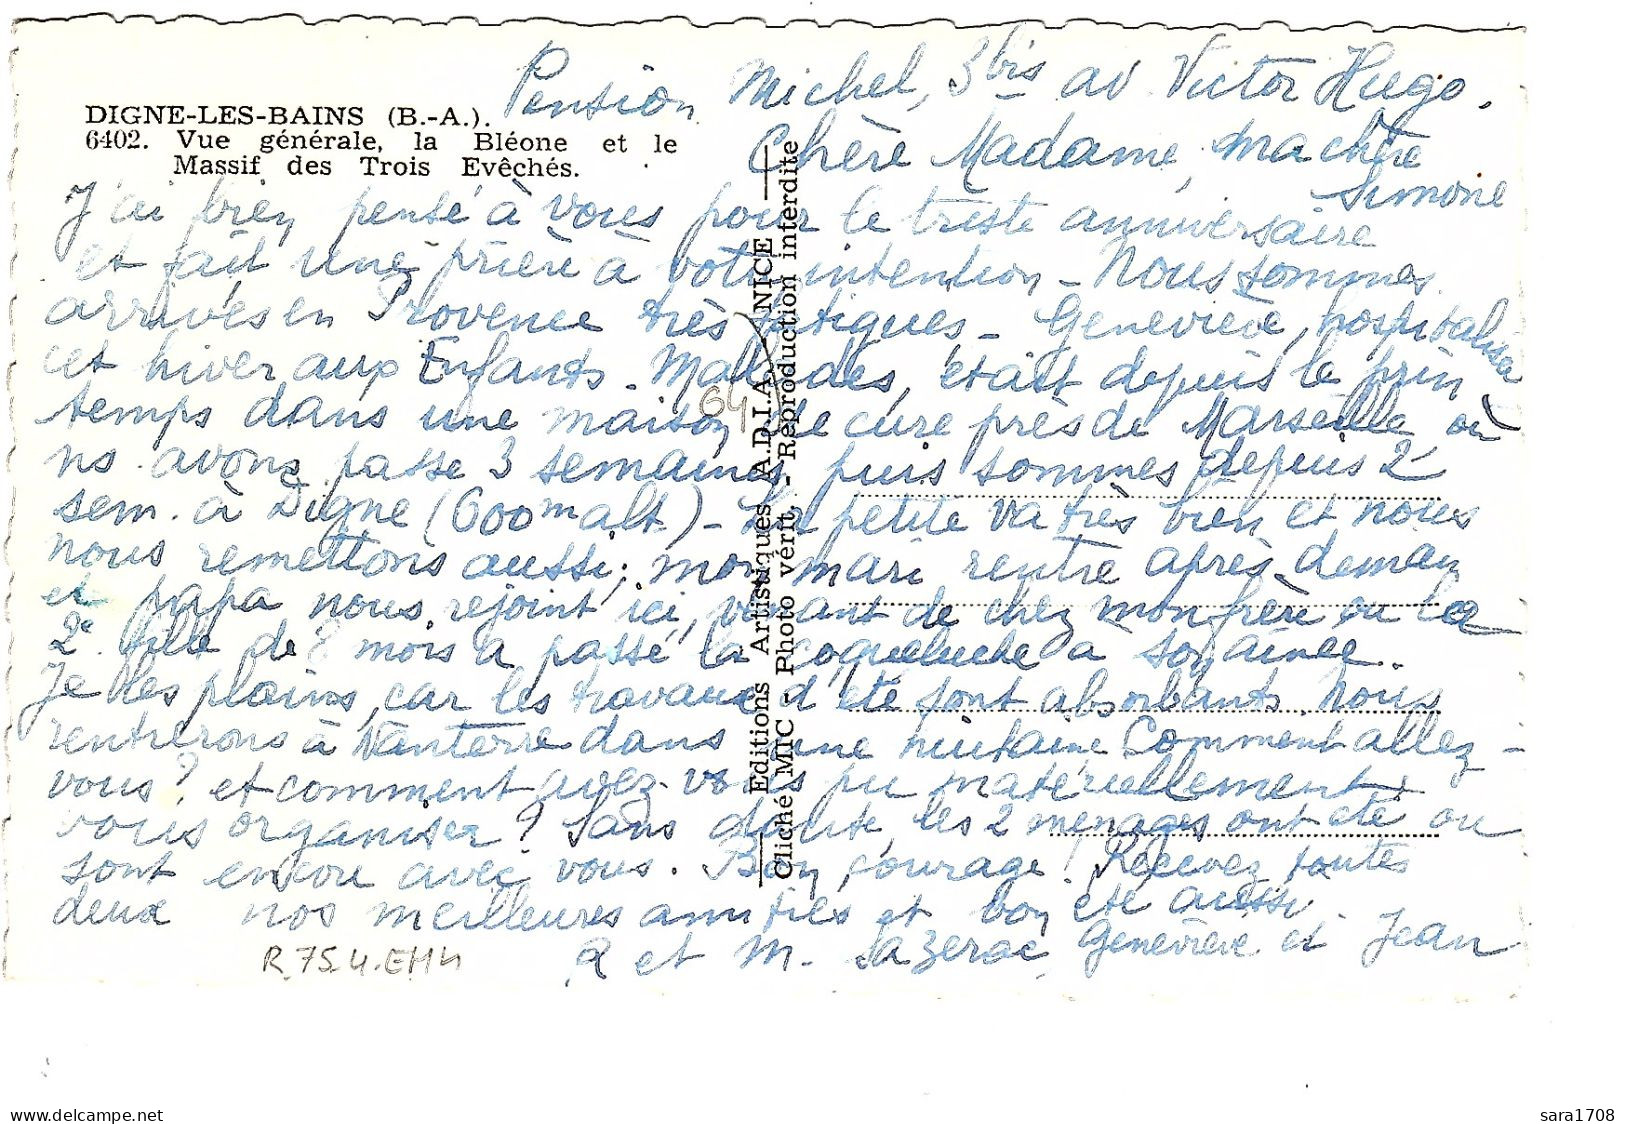 Pension Michel, 3 bis av Victor Hugo.
DIGNE-LES-BAINS (B.-A.).
6402. Vue générale, la Bléone et le
Massif des Trois Evêchés.
Chère Madame, ma chère
Simone
J'ai bien pensé à vous pour le triste anniversaire
et fait une prière à votre intention - Nous sommes
arrivés en Provence très fatigués - Geneviève, hospitalisée
cet hiver aux Enfants-Malades, était depuis le prin
temps dans une maison de cure près de Marseille où
ns avons passé 3 semaines puis sommes depuis 2
sem. à Digne (600 m alt) - La petite va très bien et nous
nous remettons aussi; mon mari rentre après demain
et papa nous rejoint ici, venant de chez mon frère ou la
2e fille de 8 mois a passé la coqueluche à son aînée.
Je les plains, car les travaux d'été sont absorbants. Nous
rentrerons à Nanterre dans une huitaine. Comment allez-
vous? et comment avez-vous pu matériellement
vous organiser? Sans doute, les 2 ménages ont été ou
sont encore avec vous. Bon courage! Recevez toutes
deux nos meilleures amitiés et bon été aussi.
et M. Lazerac Geneviève et Jean
R.75.4.EH4
64
Editions Artistiques A.D.I.A. NICE
Cliché MIC - Photo vérit. - Reproduction interdite
sara1708
delcampe.net